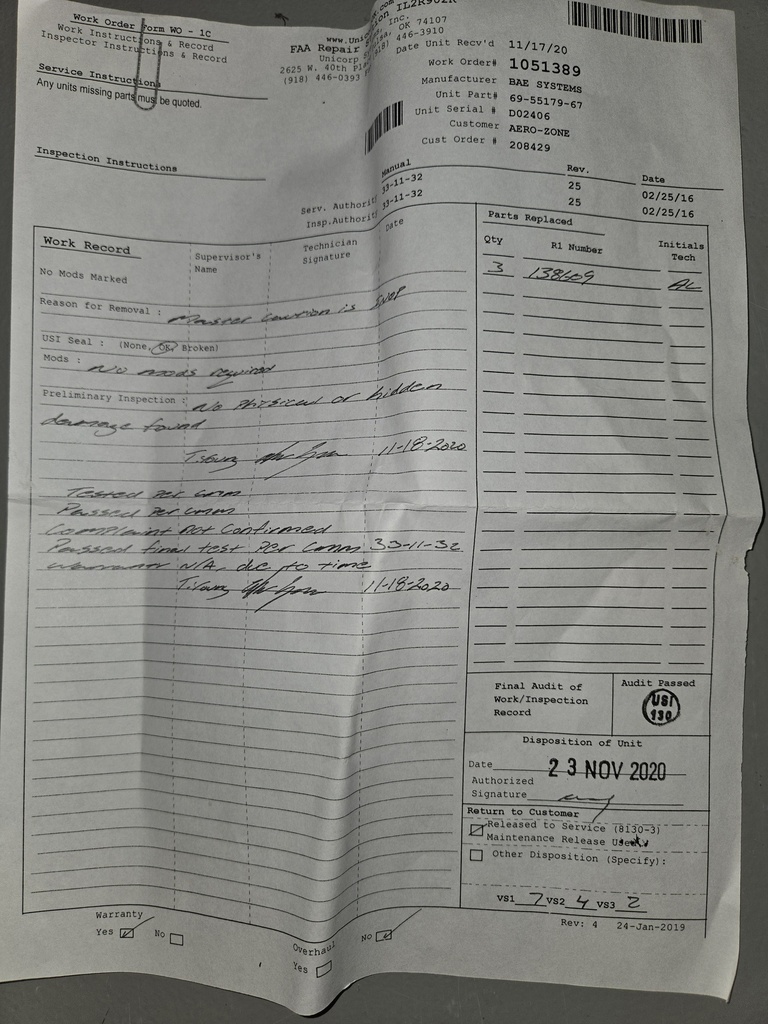 Work Order Form WO - 1C
Work Instructions & Record
Inspector Instructions & Record
Service Instructions
Any units missing parts must be quoted.
Inspection Instructions
FAA Repair
2625 W. 40th
(918) 446-0393
OK 74107
446-3910
Date Unit Recv'd 11/17/20
Work Order# 1051389
Manufacturer BAE SYSTEMS
Unit Part# 69-55179-67
Unit Serial # D02406
Customer AERO-ZONE
Cust Order # 208429
Manual Rev. Date
Serv. Authority 33-11-32 25 02/25/16
Insp.Authority 33-11-32 25 02/25/16
Work Record
Supervisor's Name
Technician Signature
Date
No Mods Marked
Reason for Removal : Master Caution is INOP
USI Seal : (None, OK, Broken)
Mods : No mods required
Preliminary Inspection : No Physical or hidden
damage found
11-18-2020
Tested Per cmm
Passed Per cmm
Complaint not Confirmed
Passed final test Per Cmm 33-11-32
warranty N/A, due to time
11-18-2020
Parts Replaced
Qty R1 Number Initials Tech
3 138609 AL
Final Audit of
Work/Inspection
Record
Audit Passed
USI
130
Disposition of Unit
Date 23 NOV 2020
Authorized
Signature
Return to Customer
Released to Service (8130-3)
Maintenance Release
Other Disposition (Specify):
VS1 7 VS2 4 VS3 2
Warranty
Yes No
Overhaul
Yes No
Rev: 4 24-Jan-2019